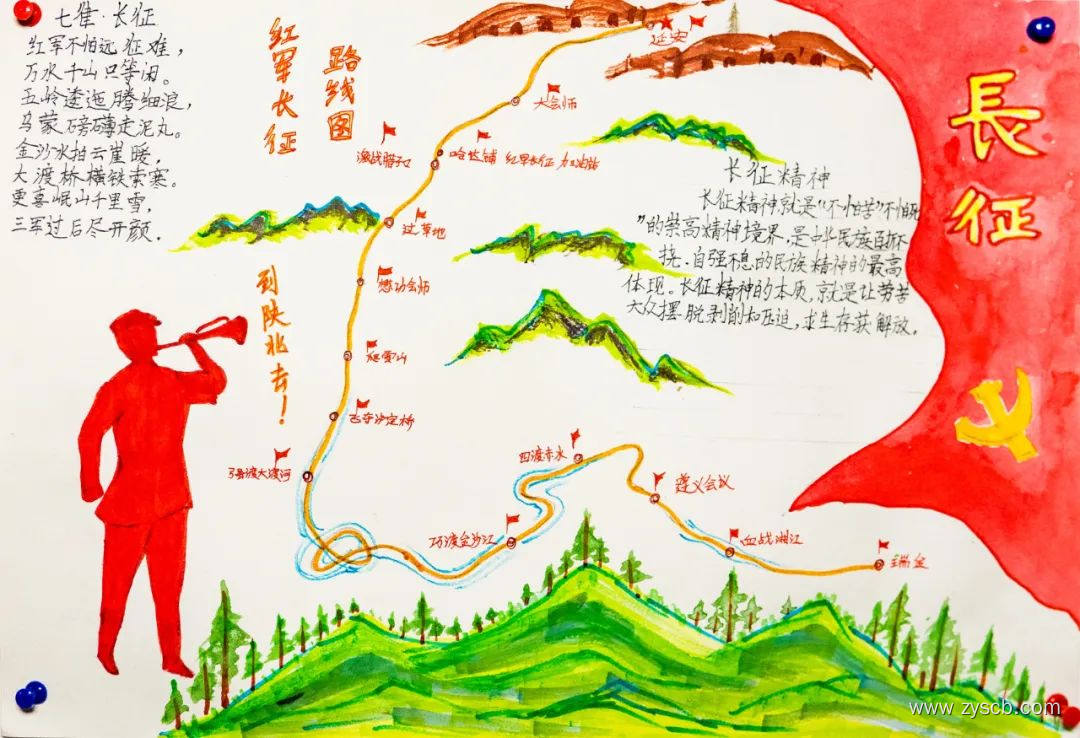 七律·长征
红军不怕远征难，
万水千山只等闲。
五岭逶迤腾细浪，
乌蒙磅礴走泥丸。
金沙水拍云崖暖，
大渡桥横铁索寒。
更喜岷山千里雪，
三军过后尽开颜。
红军长征
路线图
到陕北去！
延安
大会师
哈达铺 红军长征 加油站
激战腊子口
过草地
懋功会师
爬雪山
飞夺泸定桥
强渡大渡河
巧渡金沙江
四渡赤水
遵义会议
血战湘江
瑞金
长征精神
长征精神就是“不怕苦”不怕死
”的崇高精神境界，是中华民族百折不
挠、自强不息的民族精神的最高
体现。长征精神的本质，就是让劳苦
大众摆脱剥削和压迫，求生存获解放，
長征
www.zyscb.com